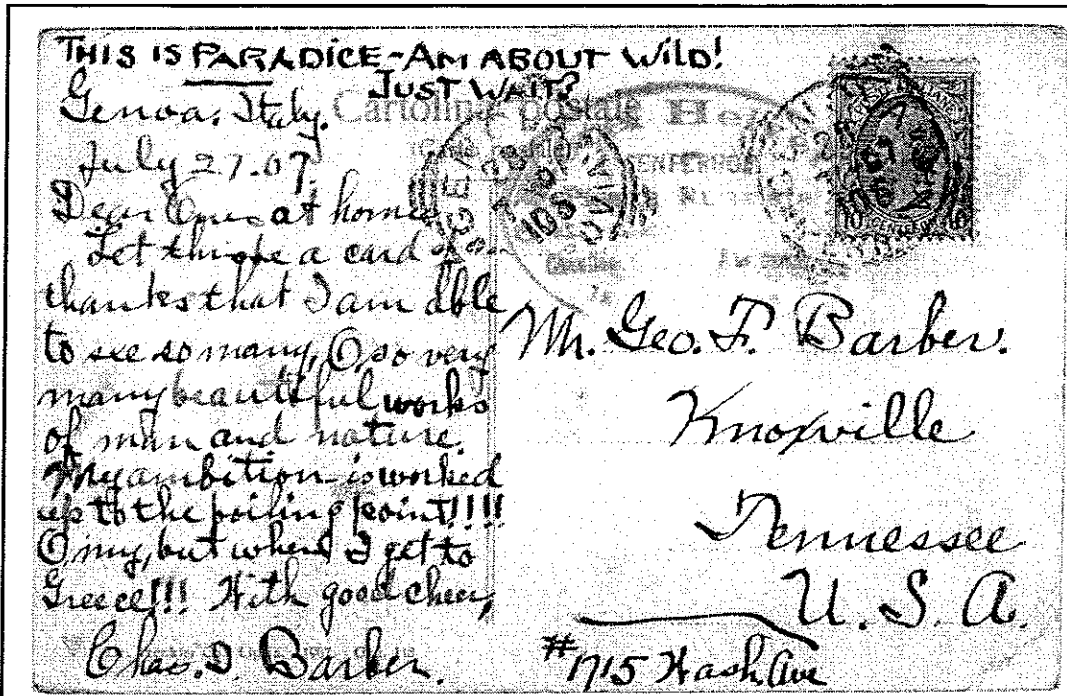 THIS IS PARADICE-AM ABOUT WILD!
JUST WAIT?
Genoa, Italy.
July 27.07.
Dear Ones at home
Let this be a card of
thanks that I am able
to see so many, O, so very
many beautiful works
of man and nature.
My ambition is worked
up to the boiling point!!!!
O my, but when I get to
Greece!!! With good cheer,
Chas. I. Barber.
Cartolina postale
Mr. Geo. F. Barber.
Knoxville
Tennessee
U. S. A.
#1715 Wash. Ave